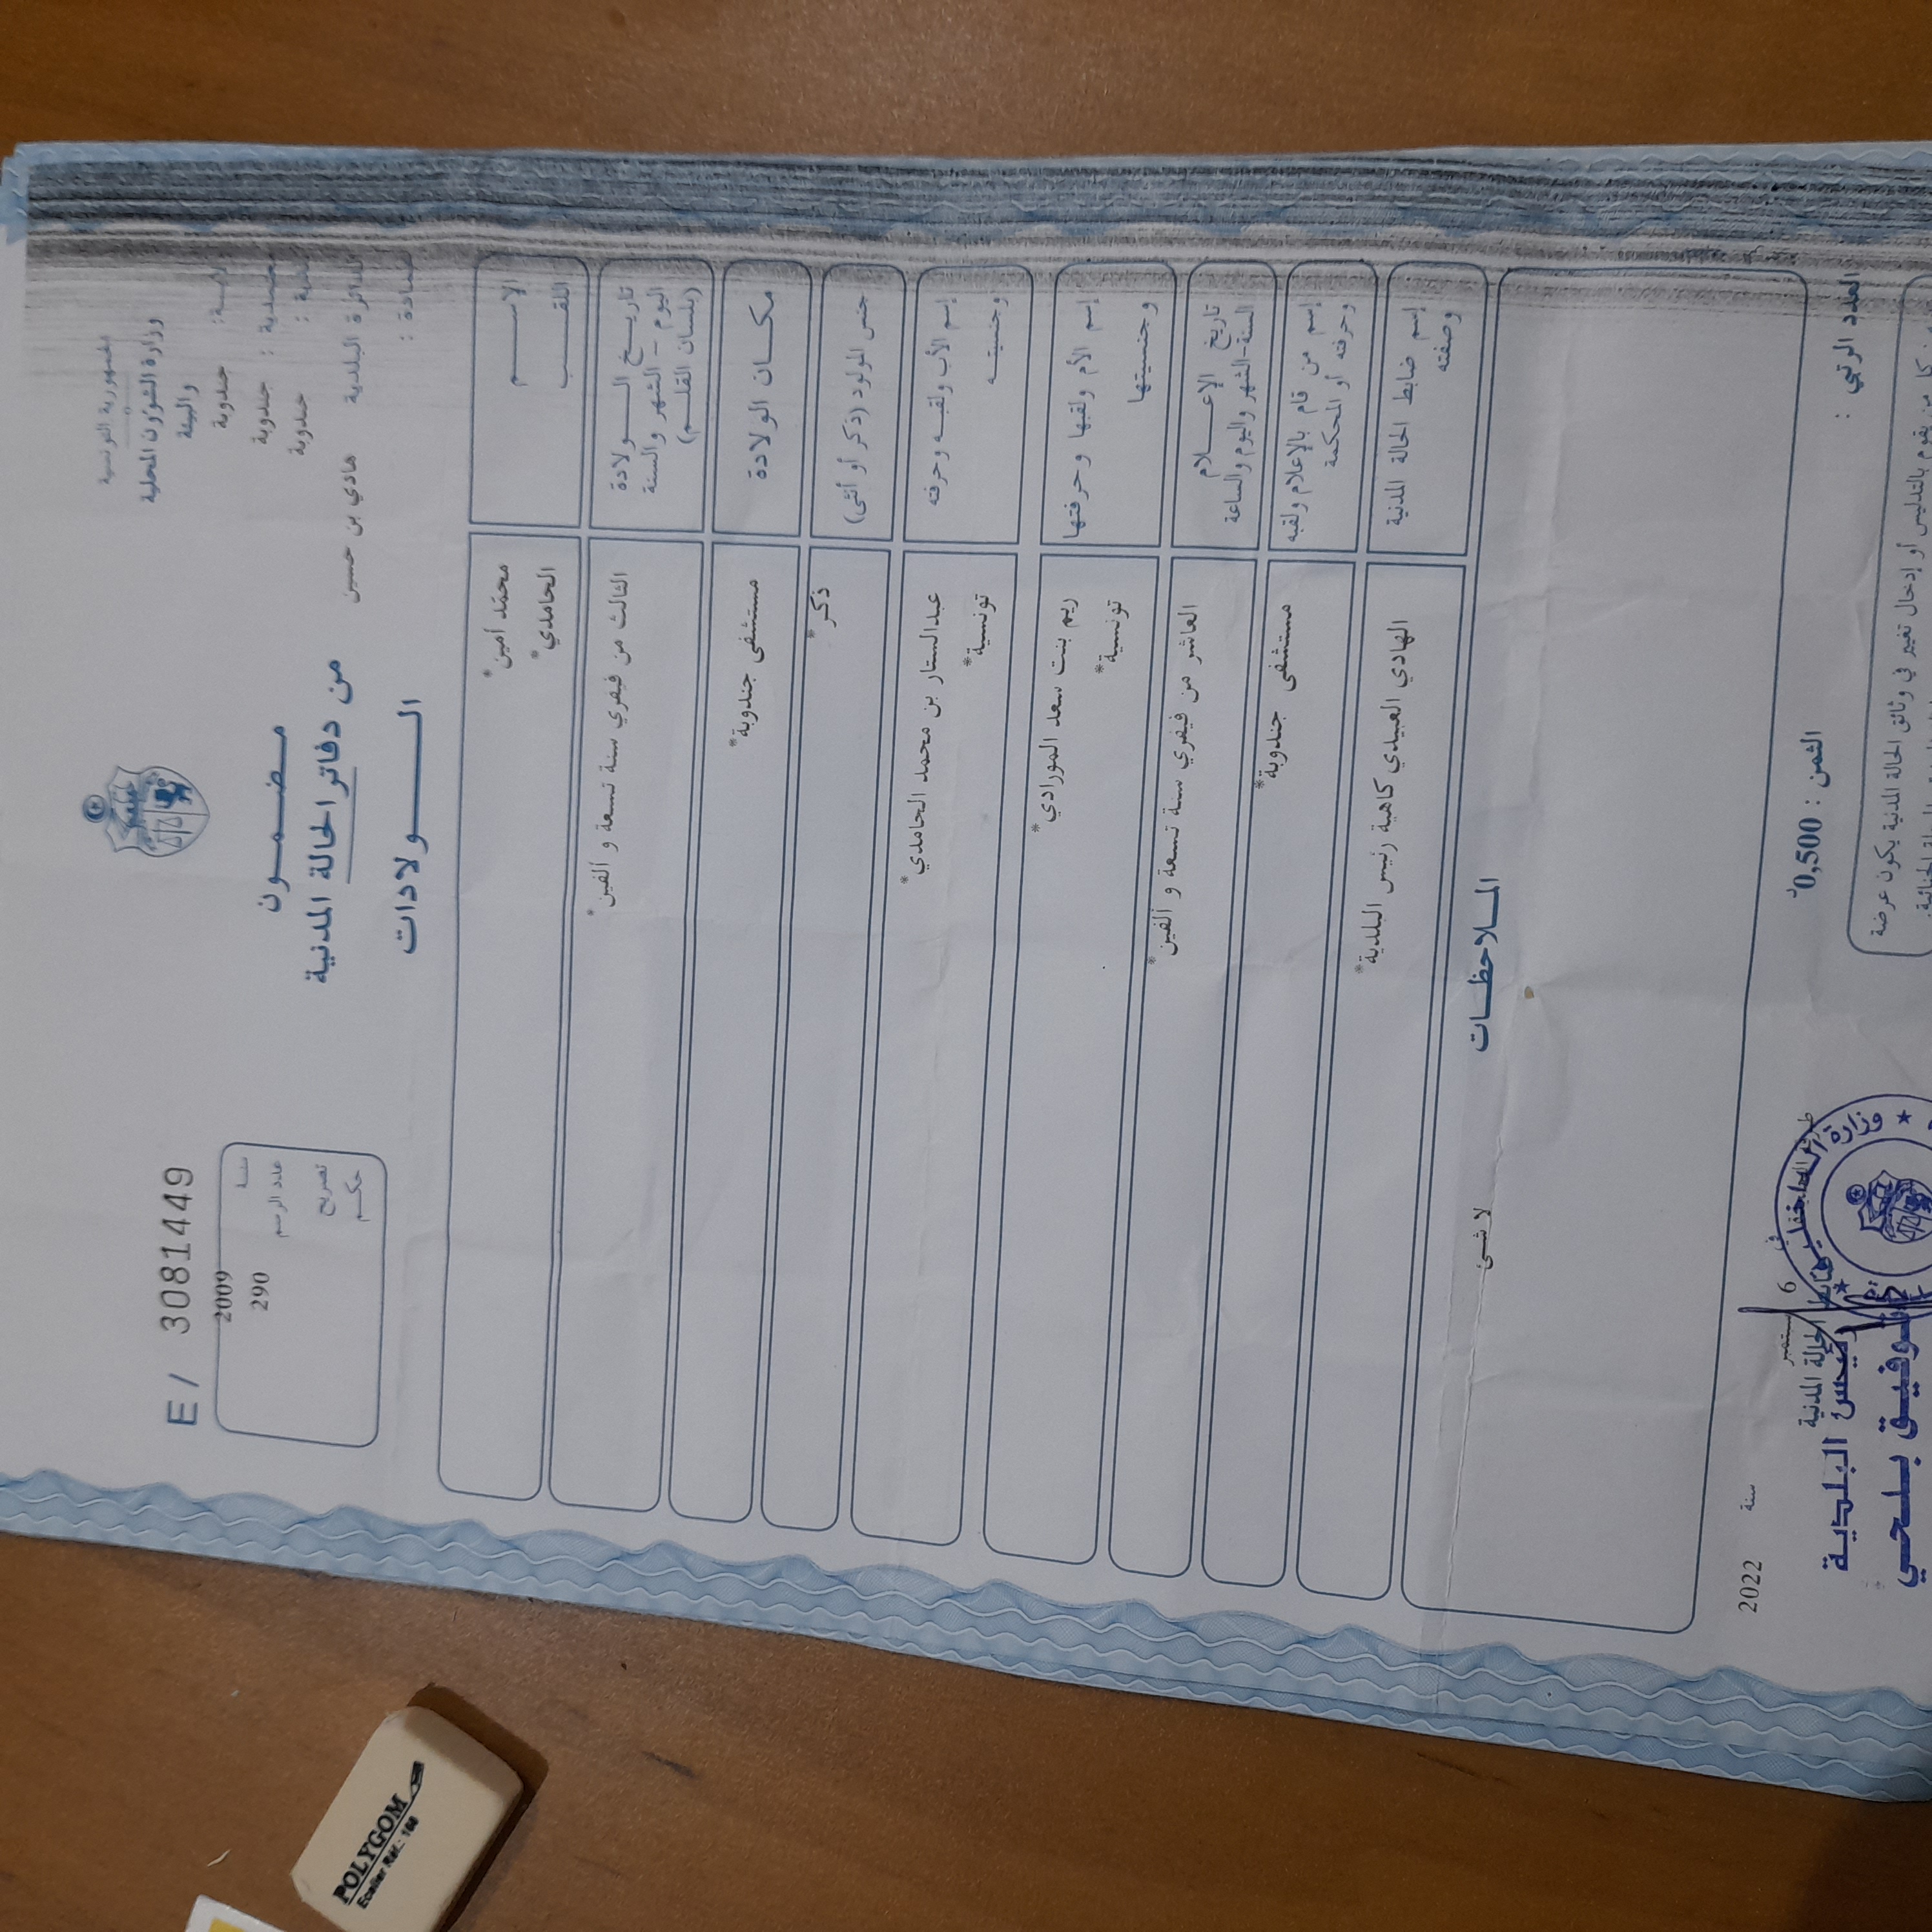 الجمهورية التونسية
وزارة الشؤون المحلية
والبيئة
جندوبة
جندوبة
جندوبة
الدائرة البلدية هادي بن حسين
مضمون
من دفاتر الحالة المدنية
الولادات
E / 3081449
سنة 2009
عدد الرسم 290
تصريح
حكم
الإسم
اللقب
محمد أمين*
الحامدي*
تاريخ الولادة
اليوم - الشهر والسنة
(بلسان القلم)
الثالث من فيفري سنة تسعة و ألفين*
مكان الولادة
مستشفى جندوبة*
جنس المولود (ذكر أو أنثى)
ذكر*
إسم الأب ولقبه وحرفته
وجنسيته
عبدالستار بن محمد الحامدي*
تونسية*
إسم الأم ولقبها وحرفتها
وجنسيتها
ريم بنت سعد المورادي*
تونسية*
تاريخ الإعلام
السنة-الشهر واليوم والساعة
العاشر من فيفري سنة تسعة و ألفين*
إسم من قام بالإعلام ولقبه
وحرفته أو المحكمة
مستشفى جندوبة*
إسم ضابط الحالة المدنية
وصفته
الهادي العبيدي كاهية رئيس البلدية*
الملاحظات
لا شئ
العدد الرتبي :
الثمن : 0,500د
6 سبتمبر
سنة 2022
ضابط الحالة المدنية
رئيس البلدية
توفيق بلحي
وزارة
كل من يقوم بالتدليس أو إدخال تغيير في وثائق الحالة المدنية يكون عرضة
POLYGOM
Ecolier Réf.: 166